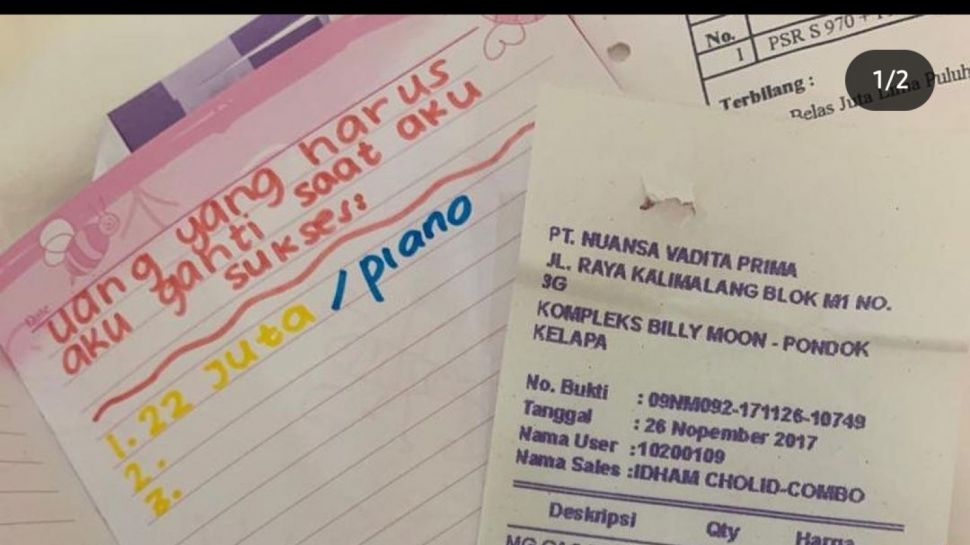 uang yang harus
aku ganti saat aku
sukses:
1. 22 Juta / piano
2.
3.
No.
1 PSR S 970 +
Terbilang :
Belas Juta Lima Puluh
1/2
PT. NUANSA VADITA PRIMA
JL. RAYA KALIMALANG BLOK M1 NO.
3G
KOMPLEKS BILLY MOON - PONDOK
KELAPA
No. Bukti : 09NM092-171126-10749
Tanggal : 26 Nopember 2017
Nama User :10200109
Nama Sales :IDHAM CHOLID-COMBO
Deskripsi Qty Harga
Date